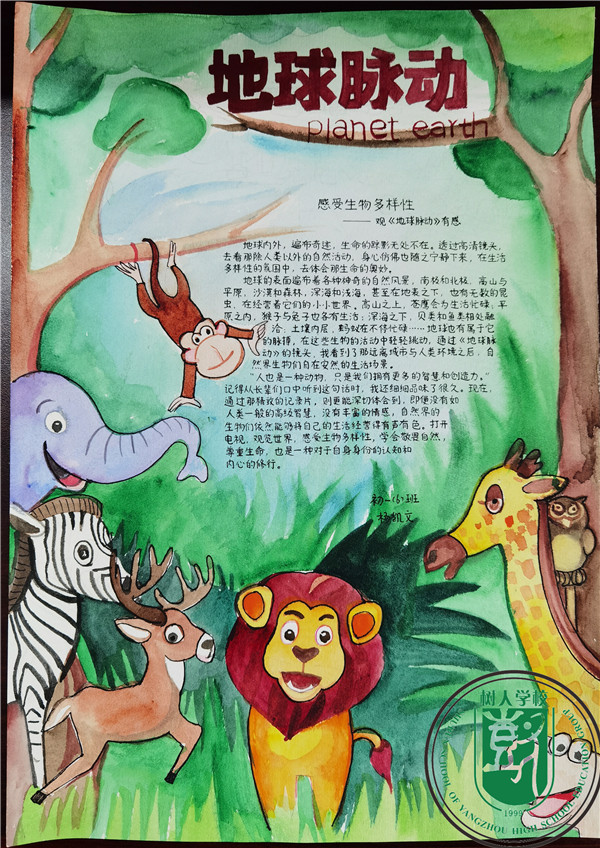 地球脉动
planet earth
感受生物多样性
——观《地球脉动》有感
地球内外，遍布奇迹，生命的踪影无处不在。透过高清镜头，
去看那除人类以外的自然活动，身心仿佛也随之宁静下来，在生活
多样性的氛围中，去体会那生命的奥妙。
地球的表面遍布着各种神奇的自然风景，南极和北极，高山与
平原，沙漠和森林，深海和浅海，甚至在地表之下，也有无数的昆
虫，在经营着它们的小小世界。高山之上，苍鹰会为生活忙碌，平
原之内，猴子与兔子也各有生活；深海之下，贝类和鱼类相处融
洽；土壤内层，蚂蚁在不停忙碌……地球也有属于它
的脉搏，在这些生物的活动中轻轻跳动，通过《地球脉
动》的镜头，我看到了那远离城市与人类环境之后，自
然界生物们自在安然的生活场景。
“人也是一种动物，只是我们拥有更多的智慧和创造力。”
记得从长辈们口中听到这句话时，我还细细品味了很久。现在，
通过那精致的记录片，则更能深切体会到，即便没有如
人类一般的高级智慧，没有丰富的情感，自然界的
生物们依然能够将自己的生活经营得有声有色。打开
电视，观览世界，感受生物多样性，学会敬畏自然，
尊重生命，也是一种对于自身身份的认知和
内心的修行。
初一(6)班
杨凯文
树人学校
SCHOOL OF YANGZHOU HIGH SCHOOL EDUCATION GROUP
1999